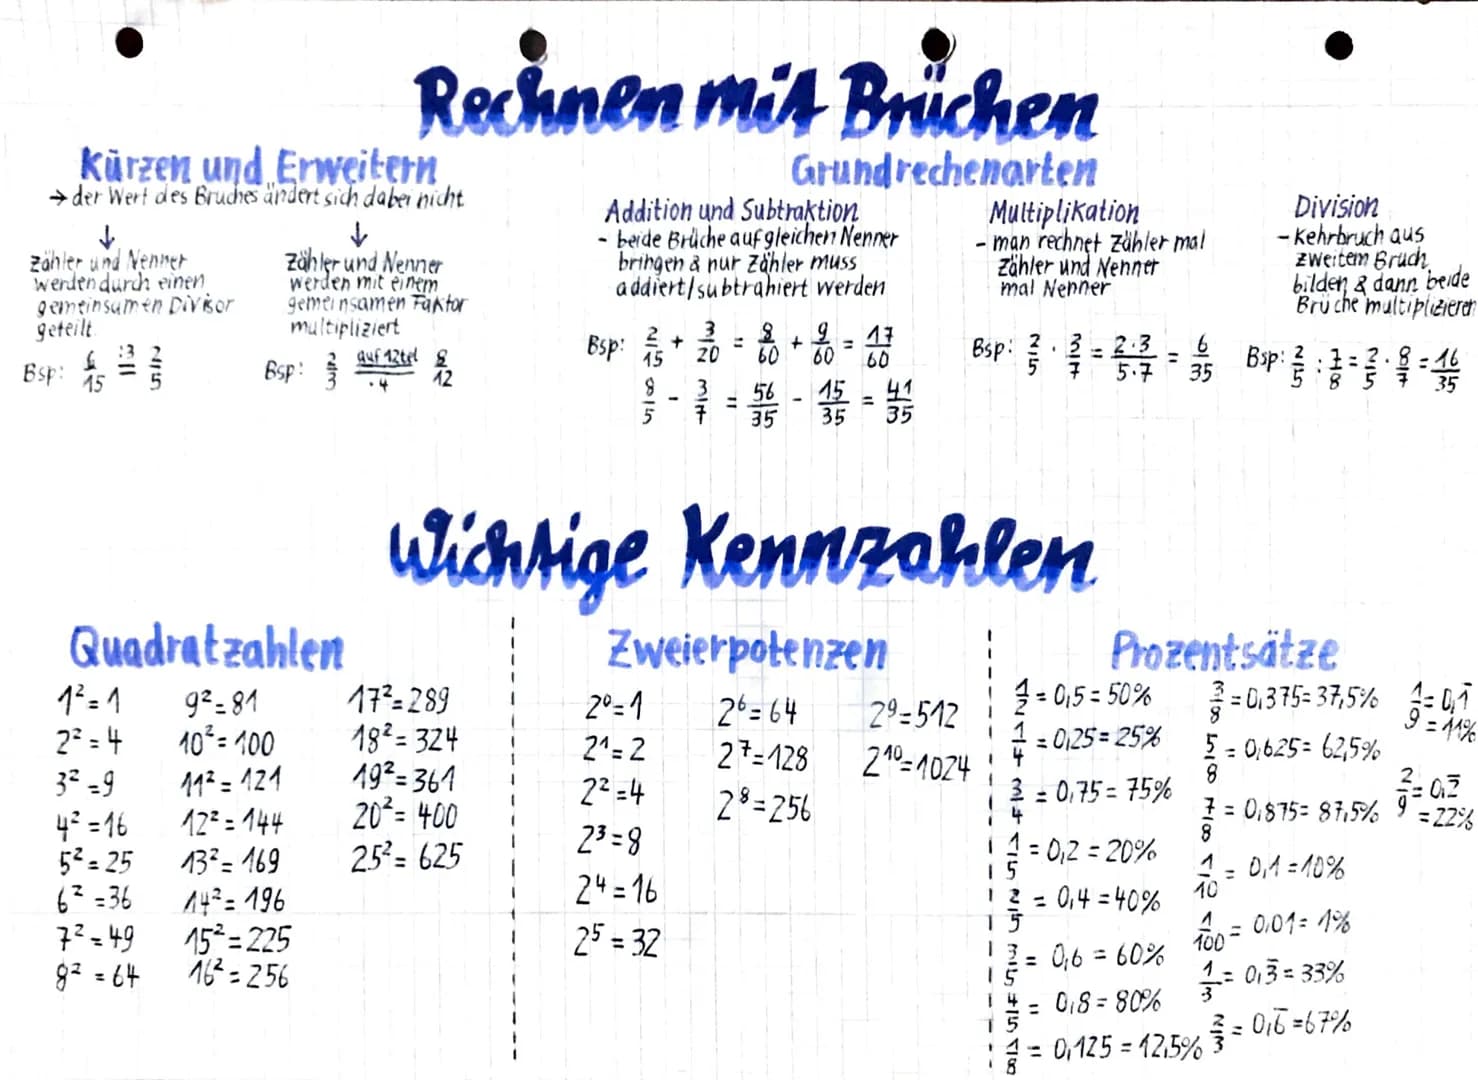 Rechnen mit Brüchen
Kürzen und Erweitern
→ der Wert des Bruches ändert sich dabei nicht
↓
Zähler und Nenner
werden durch einen
gemeinsamen Divisor
geteilt
Bsp: 6/15 :3= 2/5
↓
Zähler und Nenner
werden mit einem
gemeinsamen Faktor
multipliziert
Bsp: 2/3 auf 12tel/·4 8/12
Grundrechenarten
Addition und Subtraktion
- beide Brüche auf gleichen Nenner
bringen & nur Zähler muss
addiert/subtrahiert werden
Bsp: 2/15 + 3/20 = 8/60 + 9/60 = 17/60
8/5 - 3/7 = 56/35 - 15/35 = 41/35
Multiplikation
- man rechnet Zähler mal
Zähler und Nenner
mal Nenner
Bsp: 2/5 · 3/7 = 2·3/5·7 = 6/35
Division
- Kehrbruch aus
zweitem Bruch
bilden & dann beide
Brüche multiplizieren
Bsp: 2/5 : 7/8 = 2/5 · 8/7 = 16/35
Wichtige Kennzahlen
Quadratzahlen
1² = 1
2² = 4
3² = 9
4² = 16
5² = 25
6² = 36
7² = 49
8² = 64
9² = 81
10² = 100
11² = 121
12² = 144
13² = 169
14² = 196
15² = 225
16² = 256
17² = 289
18² = 324
19² = 361
20² = 400
25² = 625
Zweierpotenzen
2⁰ = 1
2¹ = 2
2² = 4
2³ = 8
2⁴ = 16
2⁵ = 32
2⁶ = 64
2⁷ = 128
2⁸ = 256
2⁹ = 512
2¹⁰ = 1024
Prozentsätze
1/2 = 0,5 = 50%
1/4 = 0,25 = 25%
3/4 = 0,75 = 75%
1/5 = 0,2 = 20%
2/5 = 0,4 = 40%
3/5 = 0,6 = 60%
4/5 = 0,8 = 80%
1/8 = 0,125 = 12,5%
3/8 = 0,375 = 37,5%
5/8 = 0,625 = 62,5%
7/8 = 0,875 = 87,5%
1/10 = 0,1 = 10%
1/100 = 0,01 = 1%
1/3 = 0,3̅ = 33%
2/3 = 0,6̅ = 67%
1/9 = 0,1̅
= 11%
2/9 = 0,2̅
= 22%